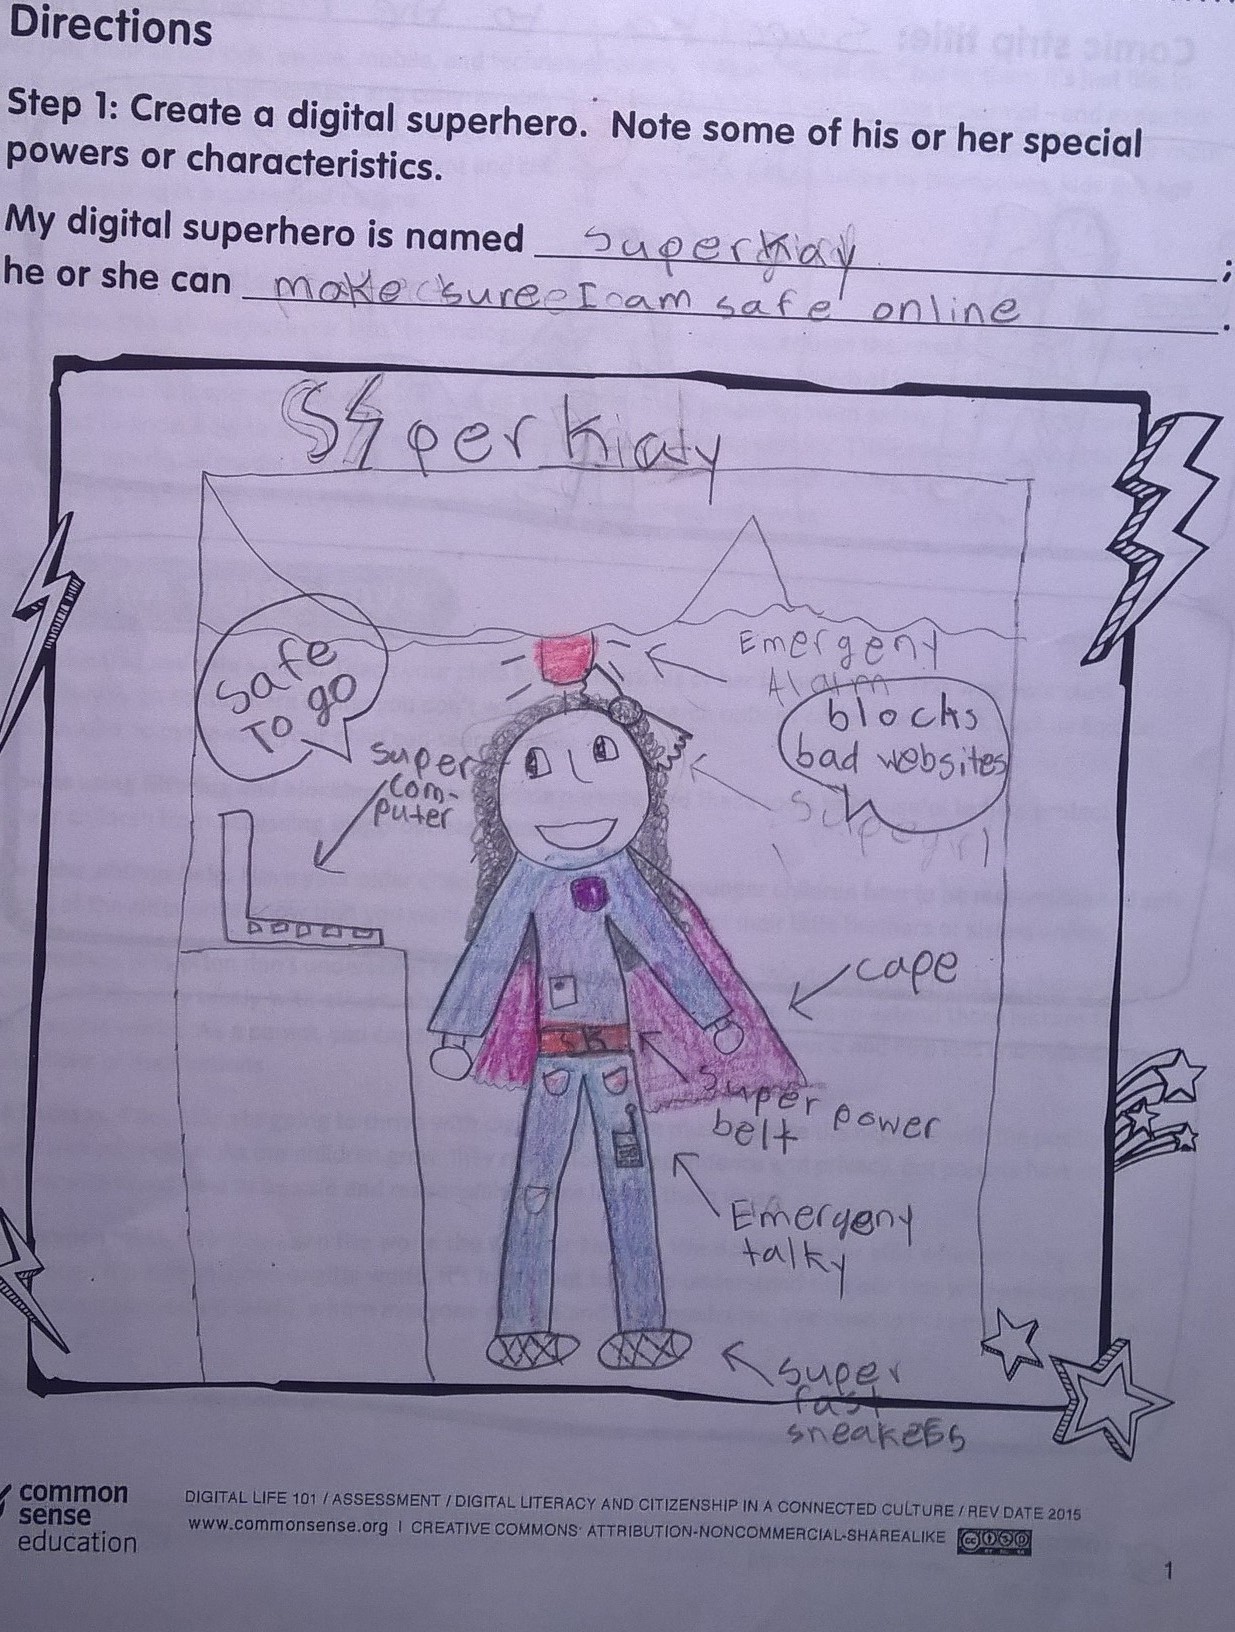 Directions
Step 1: Create a digital superhero. Note some of his or her special
powers or characteristics.
My digital superhero is named superkiay;
he or she can make sure I am safe online.
Superkiaty
safe
To go
Emergeny
Alarm
blocks
bad websites
super
com-
puter
cape
SK
super power
belt
Emergeny
talky
super
fast
sneakers
common
sense
education
DIGITAL LIFE 101 / ASSESSMENT / DIGITAL LITERACY AND CITIZENSHIP IN A CONNECTED CULTURE / REV DATE 2015
www.commonsense.org | CREATIVE COMMONS: ATTRIBUTION-NONCOMMERCIAL-SHAREALIKE
1